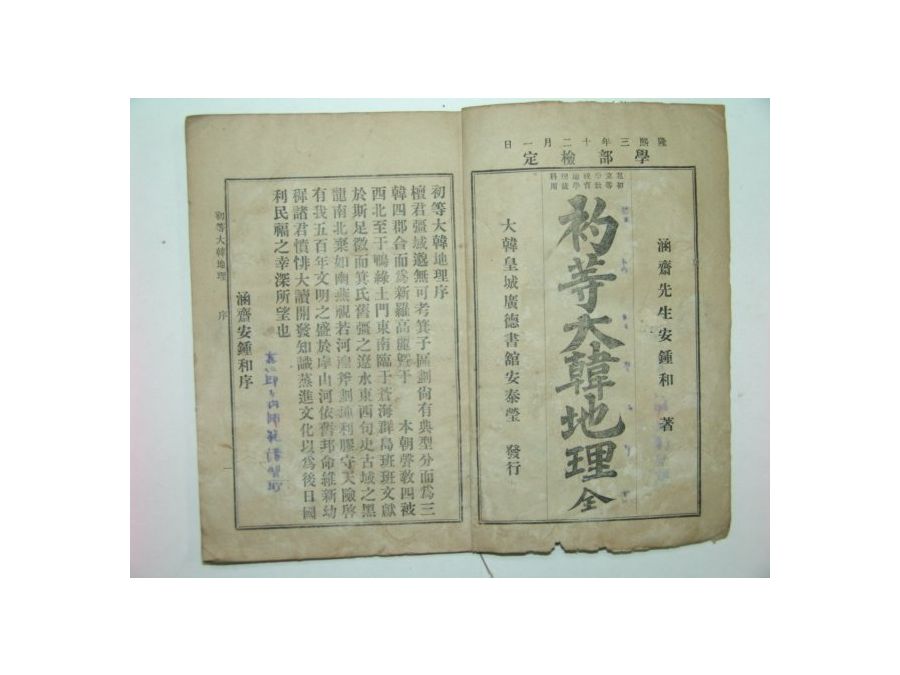 隆熙三年十二月一日
學部檢定
涵齋先生安鍾和 著
初等大韓地理 全
大韓皇城廣德書館安泰瑩 發行
初等大韓地理序
檀君彊域邈無可考箕子區劃尙有典型分而爲三
韓四郡合而爲新羅高麗曁于 本朝聲敎四被
西北至于鴨綠土門東南臨于蒼海群島班班文獻
於斯足徵而箕氏舊彊之遼水東西句史古域之黑
龍南北棄如幽燕視若河湟 劃地利膠守天險啓
有我五百年文明之盛於 山河依舊邦命維新幼
穉諸君憤悱大讀開發知識蒸進文化以爲後日國
利民福之幸深所望也
涵齋安鍾和序
初等大韓地理 序 一